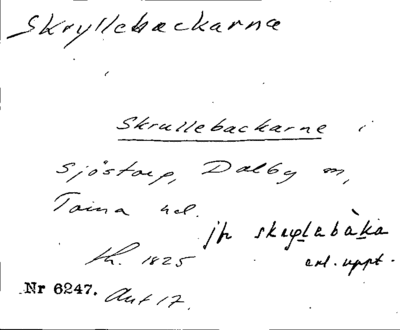 Skryllebackarne
Skrullebackarne i
Sjöstorp, Dalby sn,
Torna hd.
jfr skryl
enl. uppt.
1825
Nr 6247. Akt 17.